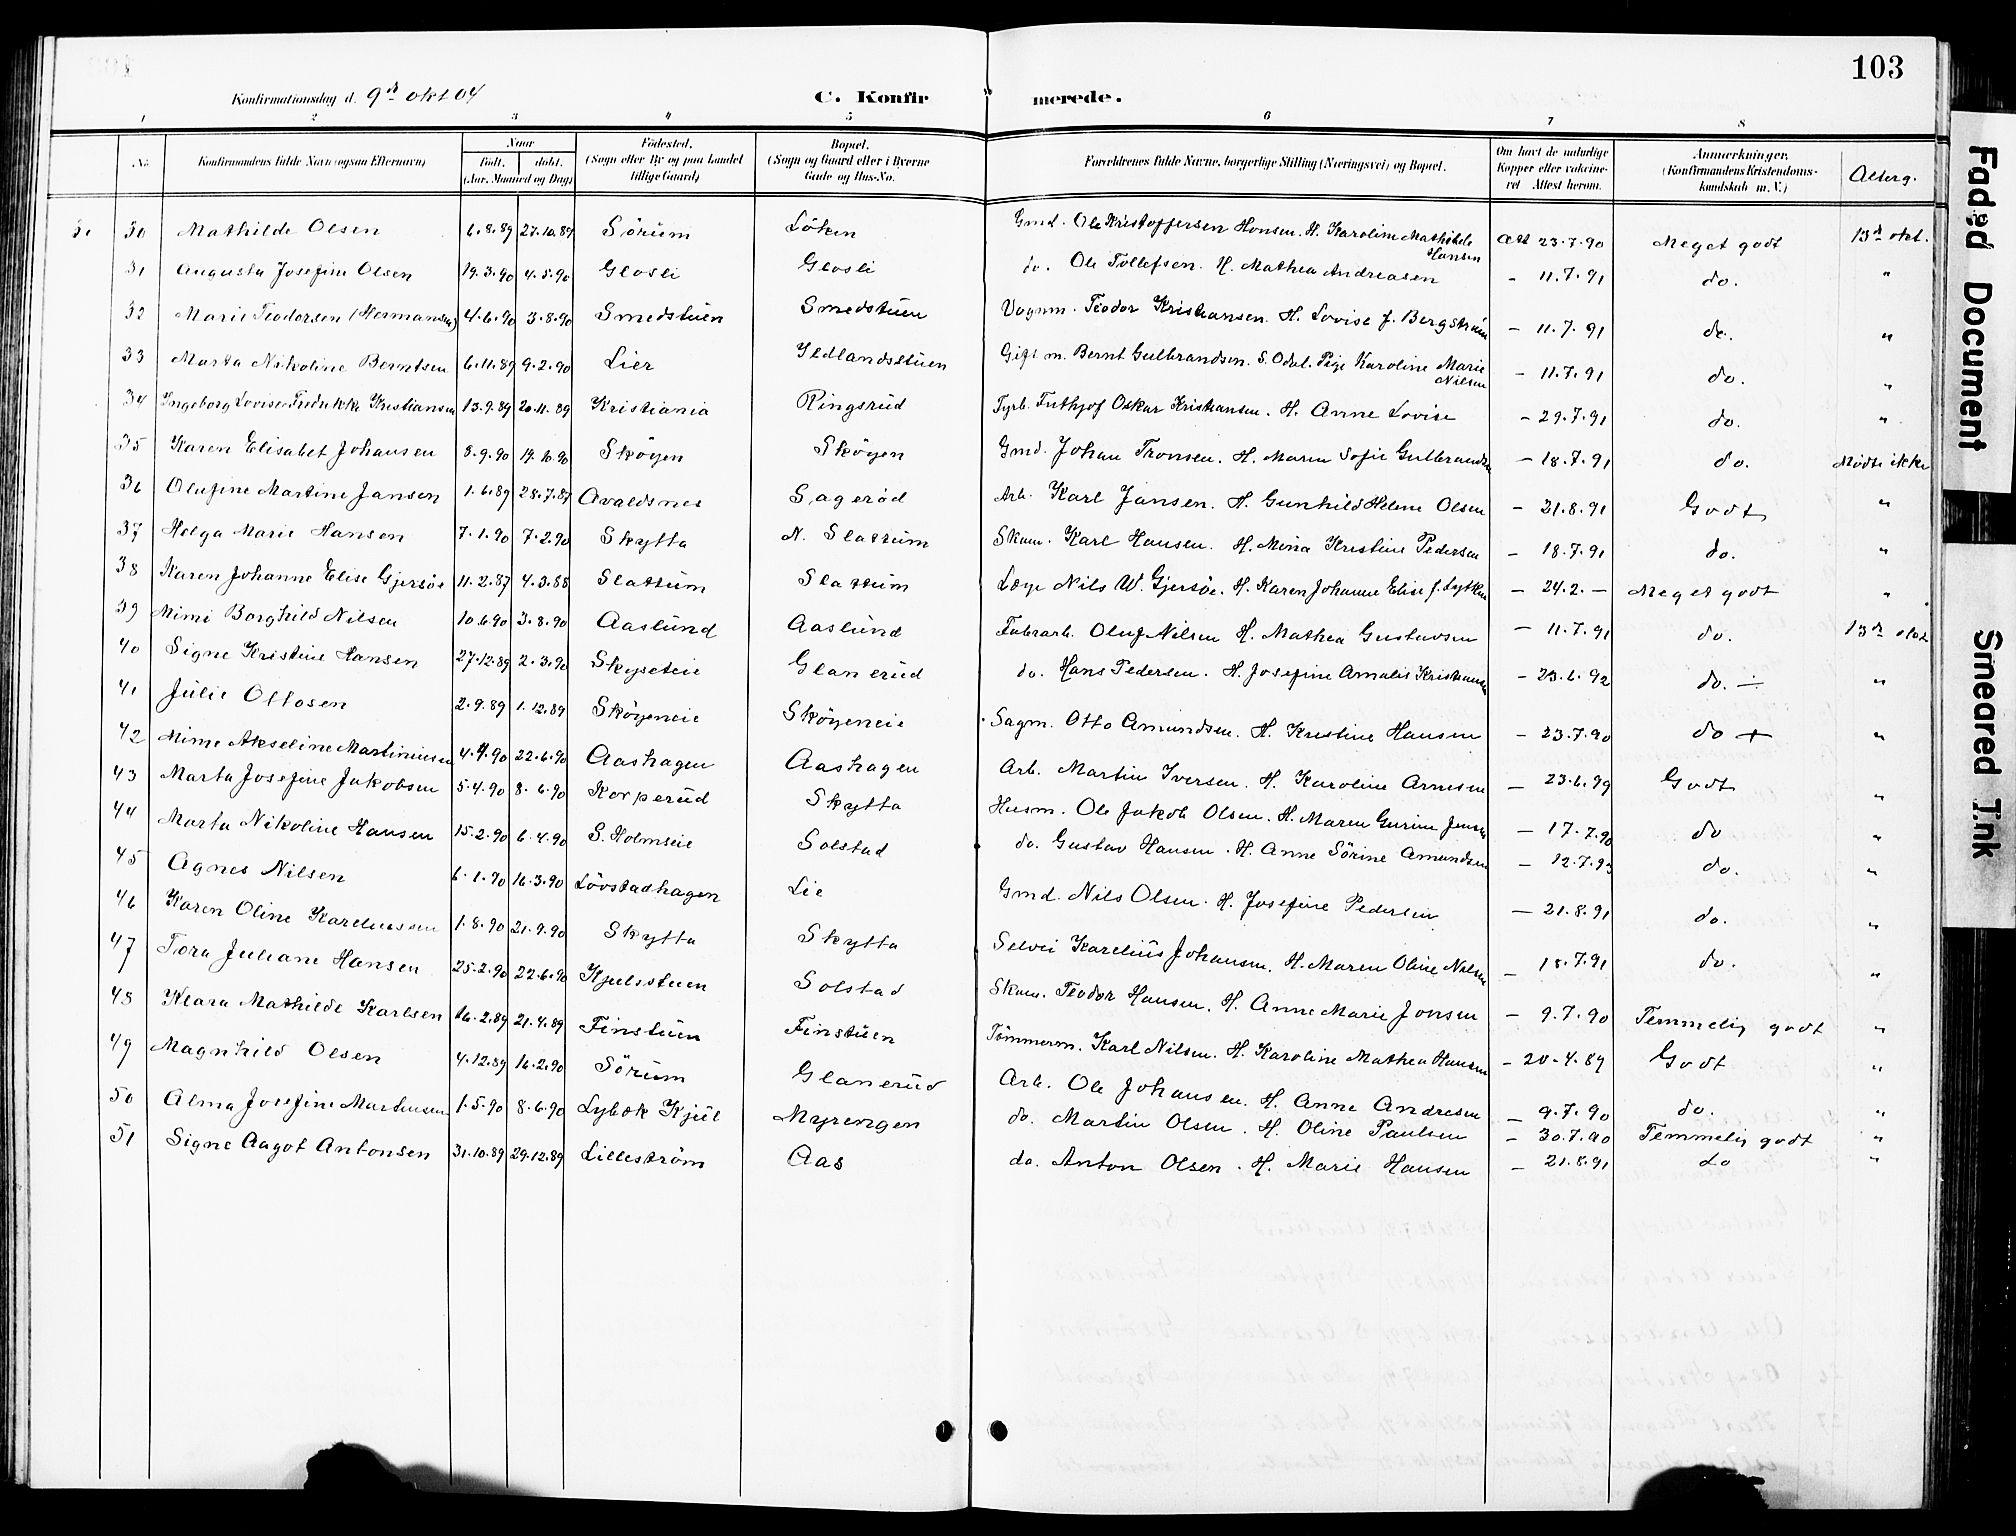 103
Konfirmationsdag d. 9de okt 04 C. Konfirmerede.
1 2 3 4 5 6 7 8
No. Konfirmandens fulde Navn (ogsaa Efternavn) Naar født, døbt. (Aar, Maaned og Dag) Fødested. (Sogn eller By og paa Landet tillige Gaard) Bopæl. (Sogn og Gaard eller i Byerne Gade og Hus-No. Forældrenes fulde Navne, borgerlige Stilling (Næringsvei) og Bopæl. Om havt de naturlige Kopper eller vakcineret. Attest herom. Anmærkninger. (Konfirmandens Kristendomskundskab m. V.) Alterg.
30 Mathilde Olsen 6.8.89 27.10.89 Sörum Löken Gmd. Ole Kristoffersen Hansen. H. Karoline Mathilde Hansen Att 23.7.90 Meget godt 13de okt.
31 Augusta Josefine Olsen 19.3.90 4.5.90 Glosli Glosli do. Ole Tollefsen. H. Mathea Andreasen - 11.7.91 do. "
32 Marie Teodorsen (Hermansen) 4.6.90 3.8.90 Smedstuen Smedstuen Vognm. Teodor Kristiansen. H. Lovise f. Bergström - 11.7.91 do. "
33 Marta Nikoline Berntsen 6.11.89 9.2.90 Lier Ildlandsstuen Gift m. Bernt Gulbrandsen. S. Odal. Pige Karoline Marie Nilsen - 11.7.91 do. "
34 Ingeborg Lovise Fredrikke Kristiansen 13.9.89 20.11.89 Kristiania Ringsrud Fyrb. Frithjof Oskar Kristiansen. H. Anne Lovise - 29.7.91 do. "
35 Karen Elisabet Johansen 8.9.90 19.10.90 Sköyen Sköyen Gmd. Johan Tronsen. H. Maren Sofie Gulbrandsen - 18.7.91 do. Mødte ikke
36 Olufine Martine Jansen 1.6.89 28.7.89 Avaldsnes Sageröd Arb. Karl Jansen. H. Gunhild Helene Olsen - 21.8.91 Godt "
37 Helga Marie Hansen 7.1.90 7.2.90 Skytta N. Slattum Skom. Karl Hansen. H. Mina Kristine Pedersen - 18.7.91 do. "
38 Karen Johanne Elise Gjersöe 11.2.87 4.3.88 Slattum Slattum Læge Nils W. Gjersöe. H. Karen Johanne Elise f. Lytken - 24.2. - Meget godt "
39 Mimi Borghild Nilsen 10.6.90 3.8.90 Aaslund Aaslund Fabrarb. Oluf Nilsen H. Mathea Gustavsen - 11.7.91 do. 13de okt
40 Signe Kristine Hansen 27.12.89 2.3.90 Skyseteie Glanerud do. Hans Pedersen. H. Josefine Amalie Kristiansen - 23.6.92 do. ÷ "
41 Julie Ottosen 2.9.89 1.12.89 Sköyeneie Sköyeneie Sagm. Otto Amundsen. H. Kristine Hansen - 23.7.90 do + "
42 Mime Akseline Martiniusen 4.4.90 22.6.90 Aashagen Aashagen Arb. Martin Iversen. H. Karoline Arnesen - 23.6.99 Godt "
43 Marta Josefine Jakobsen 5.4.90 8.6.90 Korperud Skytta Husm. Ole Jakob Olsen. H. Maren Gurine Jensen - 17.7.90 do "
44 Marta Nikoline Hansen 15.2.90 6.4.90 S. Holmseie Solstad do. Gustav Hansen. H. Anne Sörine Amundsen - 12.7.93 do. "
45 Agnes Nilsen 6.1.90 16.3.90 Lövstadhagen Lie Gmd. Nils Olsen. H. Josefine Pedersen - 21.8.91 do. "
46 Karen Oline Kareliussen 1.8.90 21.9.90 Skytta Skytta Selvei Karelius Johansen. H. Maren Oline Nilsen - 18.7.91 do. "
47 Tora Juliane Hansen 25.2.90 22.6.90 Kjulsstuen Solstad Skom. Teodor Hansen. H. Anne Marie Jonsen - 9.7.90 Temmelig godt "
48 Klara Mathilde Karlsen 16.2.89 21.4.89 Finstuen Finstuen Tömmerm. Karl Nilsen. H. Karoline Mathea Hansen - 20.4.89 Godt "
49 Magnhild Olsen 4.12.89 16.2.90 Sörum Glanerud Arb. Ole Johansen. H. Anne Andresen - 9.7.90 do. "
50 Alma Josefine Martinsen 1.5.90 8.6.90 Lybæk Kjul Myrengen do. Martin Olsen. H. Oline Paulsen - 30.7.90 Temmelig godt "
51 Signe Aagot Antonsen 31.10.89 29.12.89 Lilleström Aas do. Anton Olsen. H. Marie Hansen - 21.8.91 do "
Faded Document
Smeared Ink